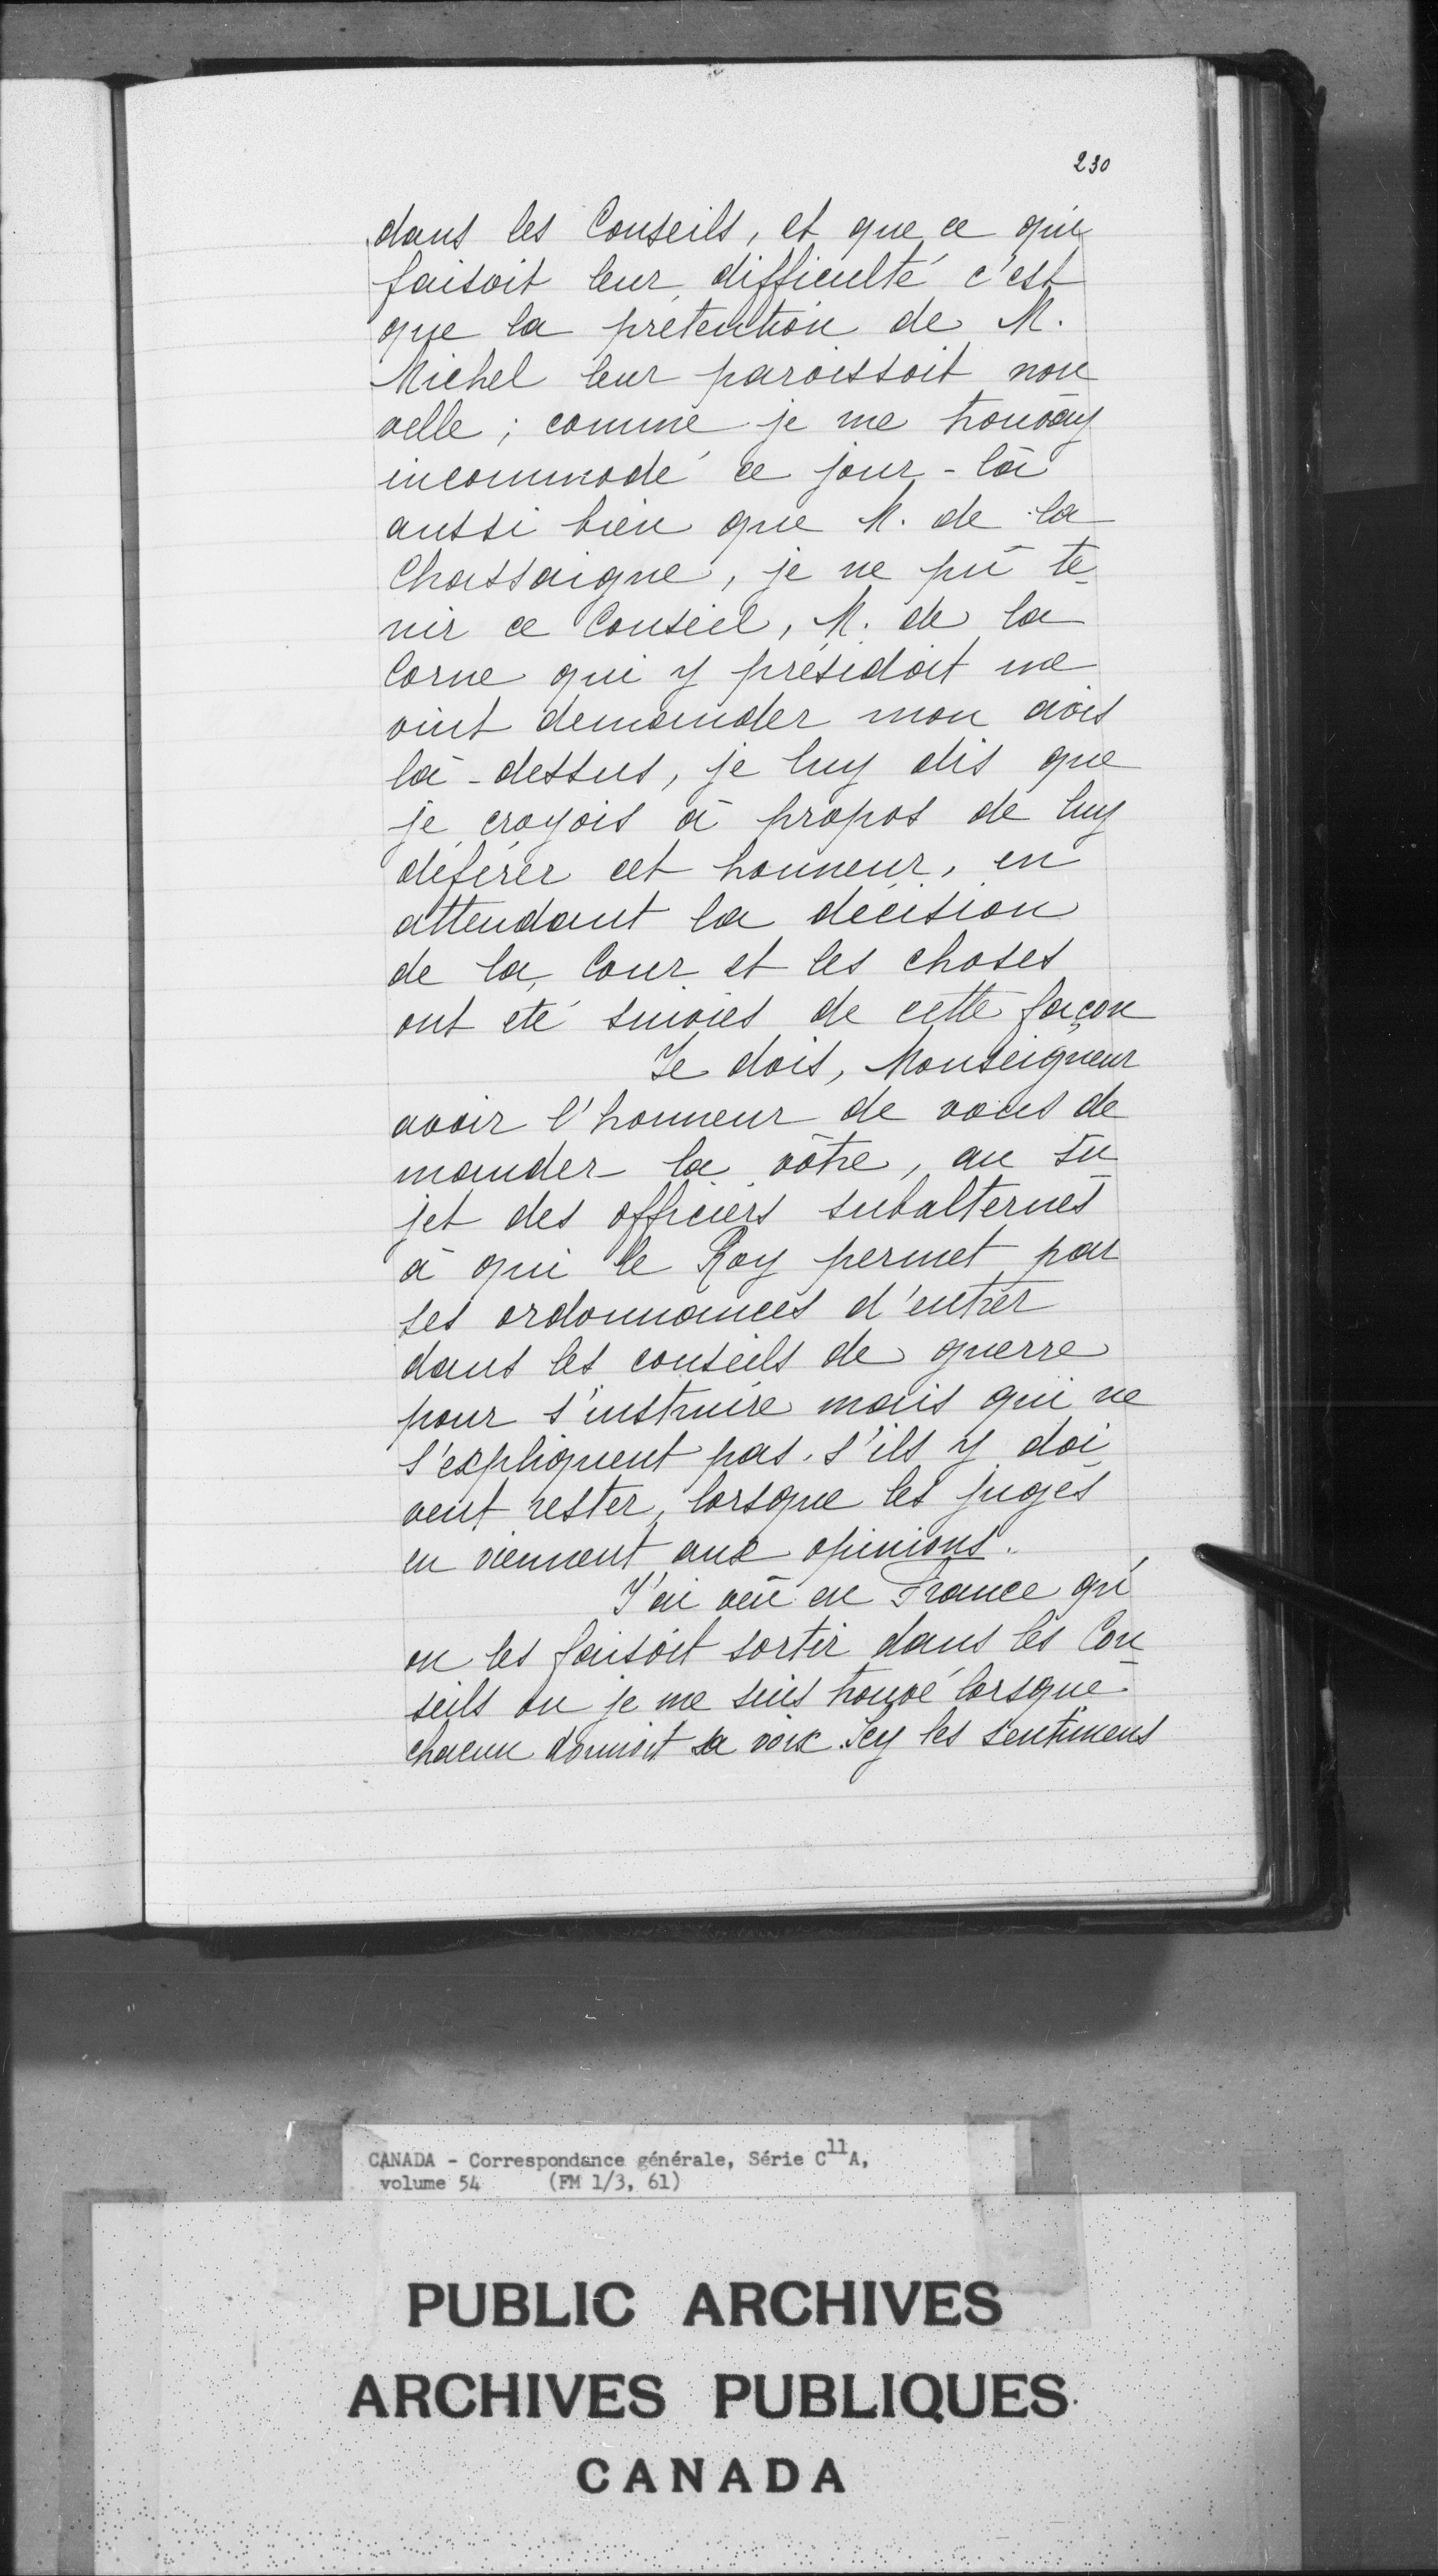 230
dans les Conseils, et que ce qui
faisoit leur difficulté c'est
que la prétention de M.
Michel leur paroissoit nou
velle ; comme je me trouvay
incommodé ce jour-là
aussi bien que M. de la
Chassaigne, je ne pû te
nir ce Conseil, M. de la
Corne qui y présidoit me
vint demander mon avis
là-dessus, je luy dis que
je croyois à propos de luy
déférer cet honneur, en
attendant la décision
de la Cour et les choses
ont été suivies de cette façon
Je dois, Monseigneur
avoir l'honneur de vous de
mander la vôtre, au su
jet des officiers subalternes
à qui le Roy permet par
ses ordonnances d'entrer
dans les conseils de guerre
pour s'instruire mais qui ne
s'expliquent pas s'ils y doi
vent rester, lorsque les juges
en viennent aux opinions.
J'ai veû en France qu'
on les faisoit sortir dans les Con
seils ou je me suis trouvé lorsque
chacun donnoit sa voix. Icy les sentimens
CANADA - Correspondance générale, Série C11A,
volume 54 (FM 1/3, 61)
PUBLIC ARCHIVES
ARCHIVES PUBLIQUES
CANADA